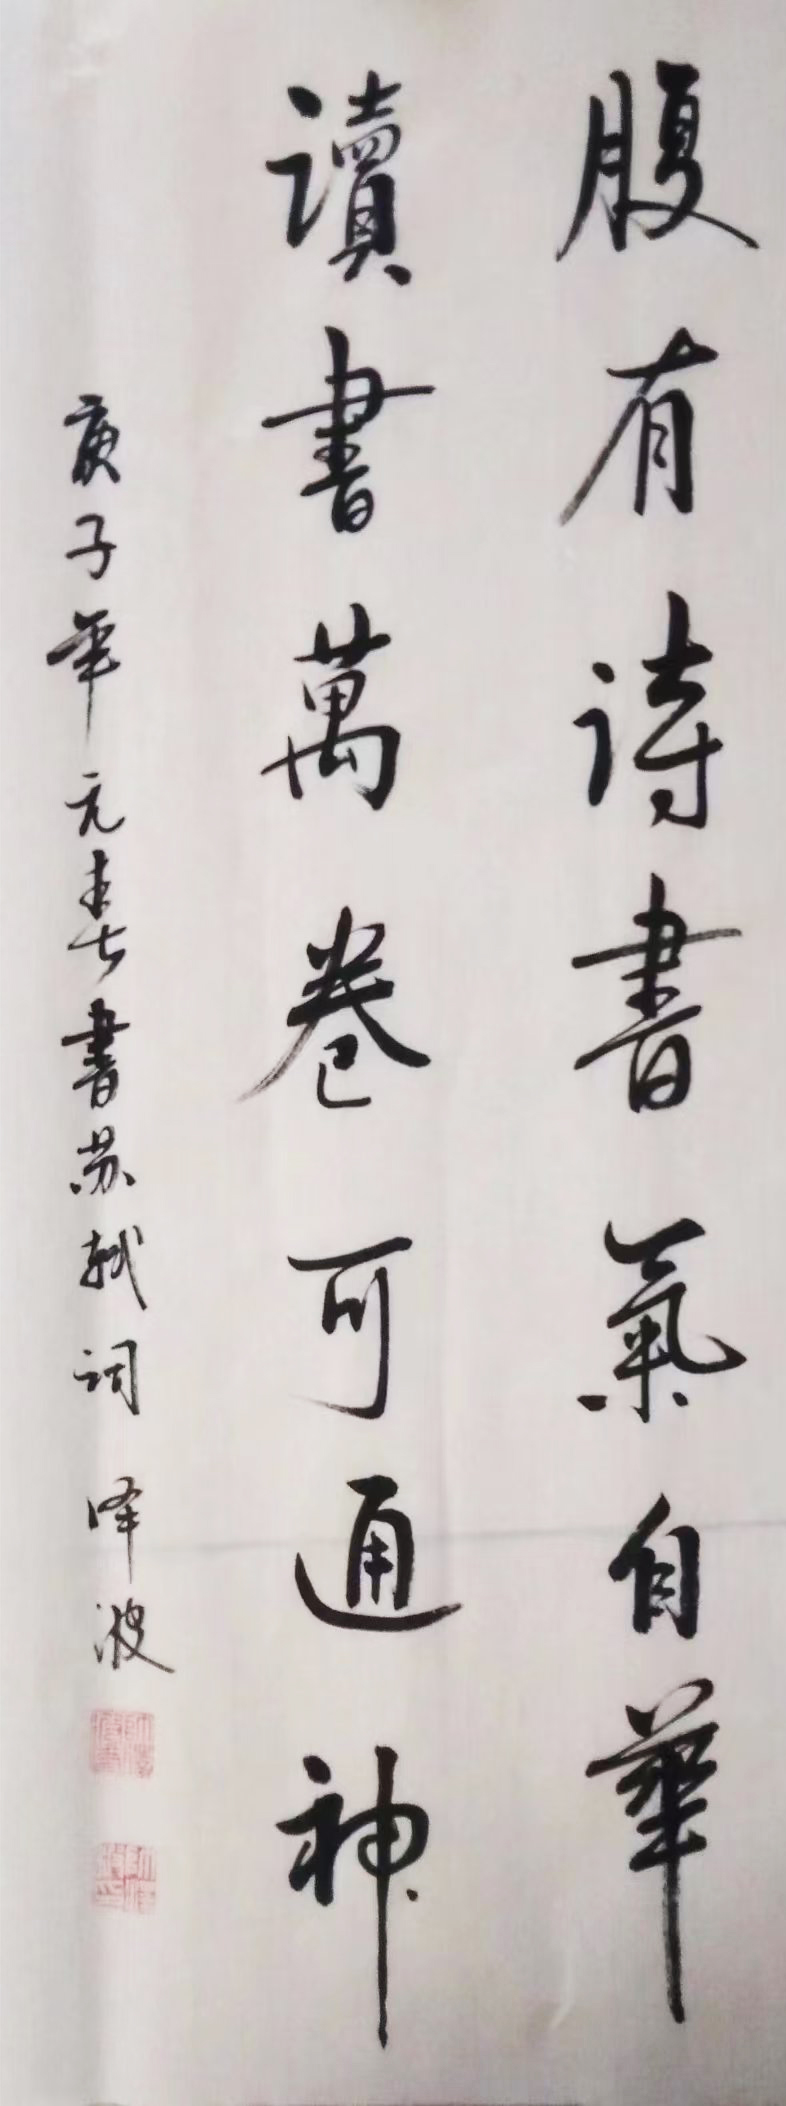 腹有詩書氣自華
讀書萬卷可通神
庚子年元春書苏轼词 泽波